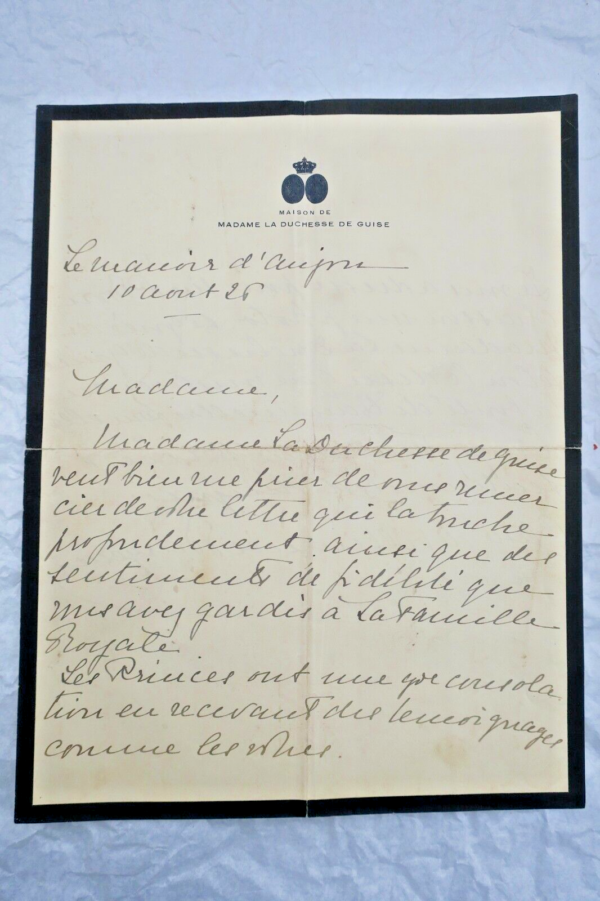 MAISON DE
MADAME LA DUCHESSE DE GUISE
Le Manoir d'Anjou
10 Aout 26
Madame,
Madame La Duchesse de Guise
veut bien me prier de vous remer
cier de votre lettre qui la touche
profondement ainsi que des
sentiments de fidélité que
vous avez gardés à La Famille
Royale.
Les Princes ont une gde consola
tion en recevant des temoignages
comme les votres.